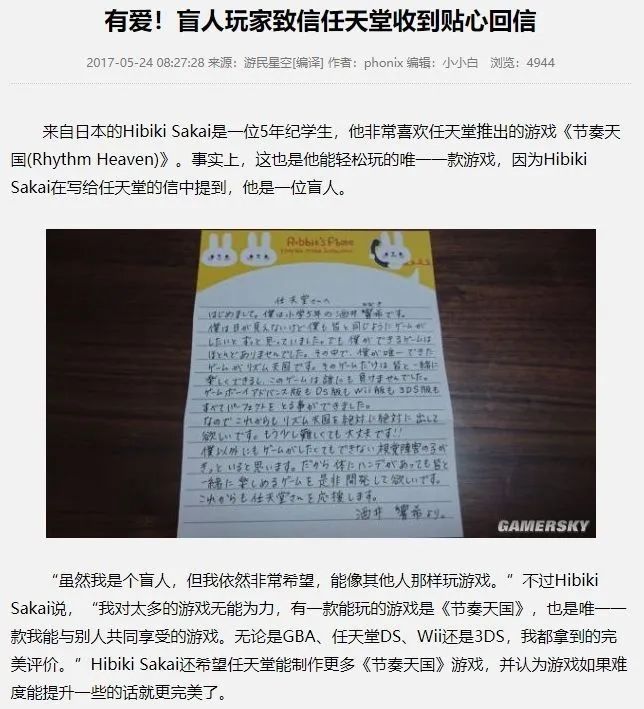 有爱！盲人玩家致信任天堂收到贴心回信
2017-05-24 08:27:28 来源：游民星空[编译] 作者：phonix 编辑：小小白 浏览：4944
来自日本的Hibiki Sakai是一位5年纪学生，他非常喜欢任天堂推出的游戏《节奏天
国(Rhythm Heaven)》。事实上，这也是他能轻松玩的唯一一款游戏，因为Hibiki
Sakai在写给任天堂的信中提到，他是一位盲人。
Rabbit's Phone
任天堂さんへ
はじめまして。僕は小学5年の酒井響希です。
僕は目が見えないけど僕も皆と同じようにゲームが
したいとずっと思っていました。でも僕ができるゲームは
ほとんどありませんでした。その中で、僕が唯一できた
ゲームがリズム天国です。そのゲームだけは皆と一緒に
楽しくできるし、このゲームは誰にも負けませんでした。
ゲームボーイアドバンス版もDS版もWii版も3DS版も
すべてパーフェクトをとる事ができました。
なのでこれからもリズム天国を絶対に絶対に出して
欲しいです。もう少し難しくても大丈夫です!!
僕以外にもゲームがしたくてもできない視覚障害の子が
きっといると思います。だから体にハンデがあっても皆と
一緒に楽しめるゲームを是非開発して欲しいです。
これからも任天堂さんを応援します。
酒井 響希より。
GAMERSKY
“虽然我是个盲人，但我依然非常希望，能像其他人那样玩游戏。”不过Hibiki
Sakai说，“我对太多的游戏无能为力，有一款能玩的游戏是《节奏天国》，也是唯一一
款我能与别人共同享受的游戏。无论是GBA、任天堂DS、Wii还是3DS，我都拿到的完
美评价。”Hibiki Sakai还希望任天堂能制作更多《节奏天国》游戏，并认为游戏如果难
度能提升一些的话就更完美了。